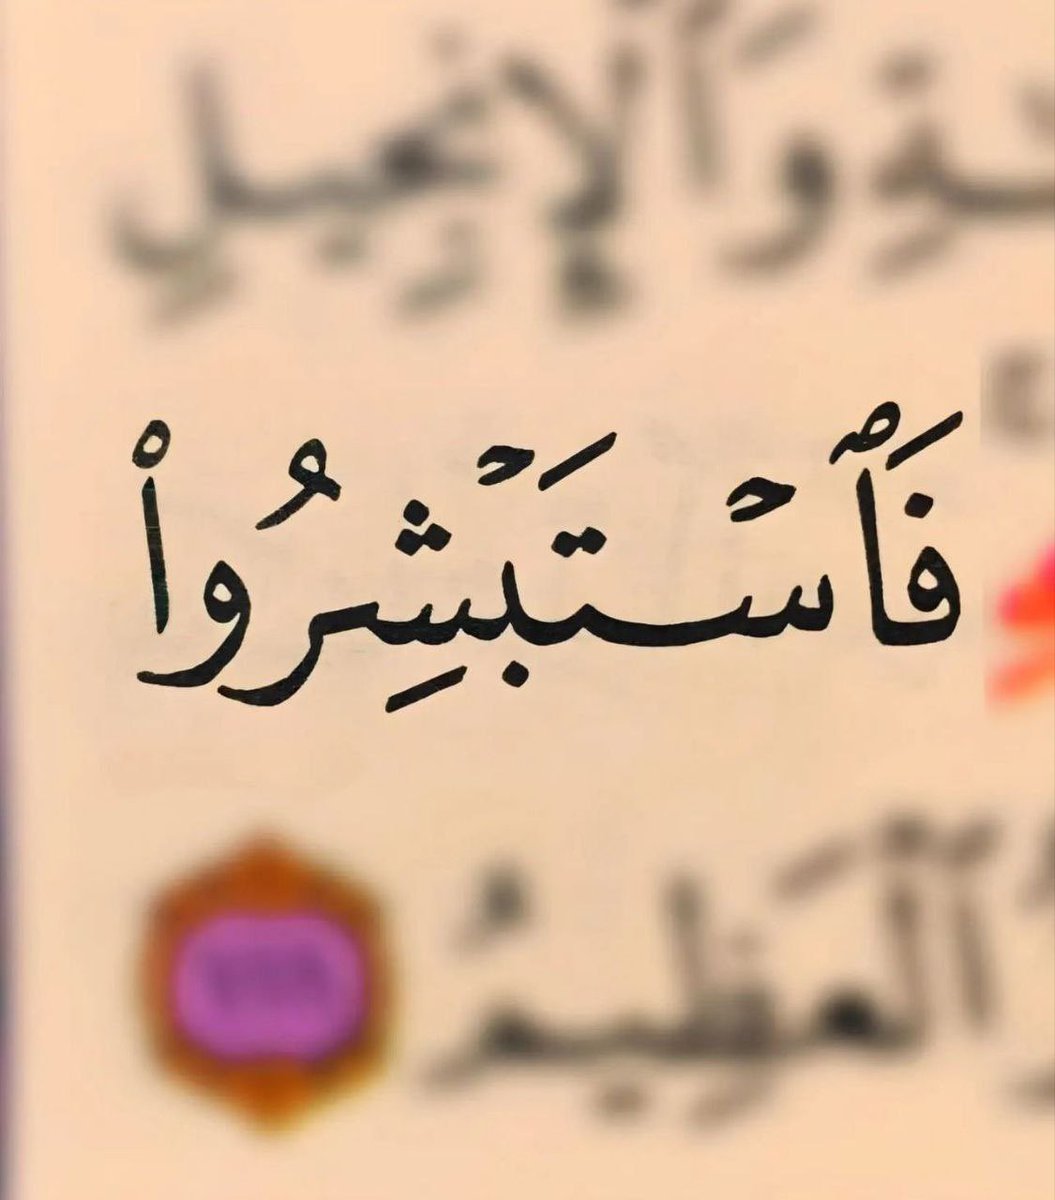 ـةِ وَٱلْإِنجِيلِ
فَٱسْتَبْشِرُوا۟
ٱلْعَظِيمُ